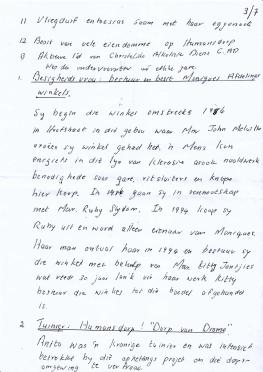 3/7
11 Vliegduif entoesias saam met haar eggenoot
12 Besit van vele eiendomme op Humansdorp
9 Aktiewe lid van Christelike Alkoholiste Diens C.A.D
1. Besigheidsvrou: bestuur en besit Moniques
winkels.
Sy begin die winkel omstreeks
in Hoofstraat in die gebou waar Mnr John Melville
vroeër sy winkel gehad het. 'n Mens kon
enigiets in die lyn van klerasie asook naaldwerk
benodighede soos gare, ritssluiters en knope
hier koop. In gaan sy in vennootskap
met Mev. Ruby Sydow. In 1994 koop sy
Ruby uit en word alleen eienaar van Moniques.
Haar man ontval haar in 1994 en bestuur sy
die winkel met behulp van Mev Kitty Jantjies
wat reeds 20 jaar lank vir haar werk Kitty
bestuur die winkel tot die boedel afgehandel
is.
2 Tuinier: Humansdorp "Dorp van Drome"
Anita was 'n kranige tuinier en was intensief
betrokke by die opheldings projek om die dorp-
omgewing te verfraai